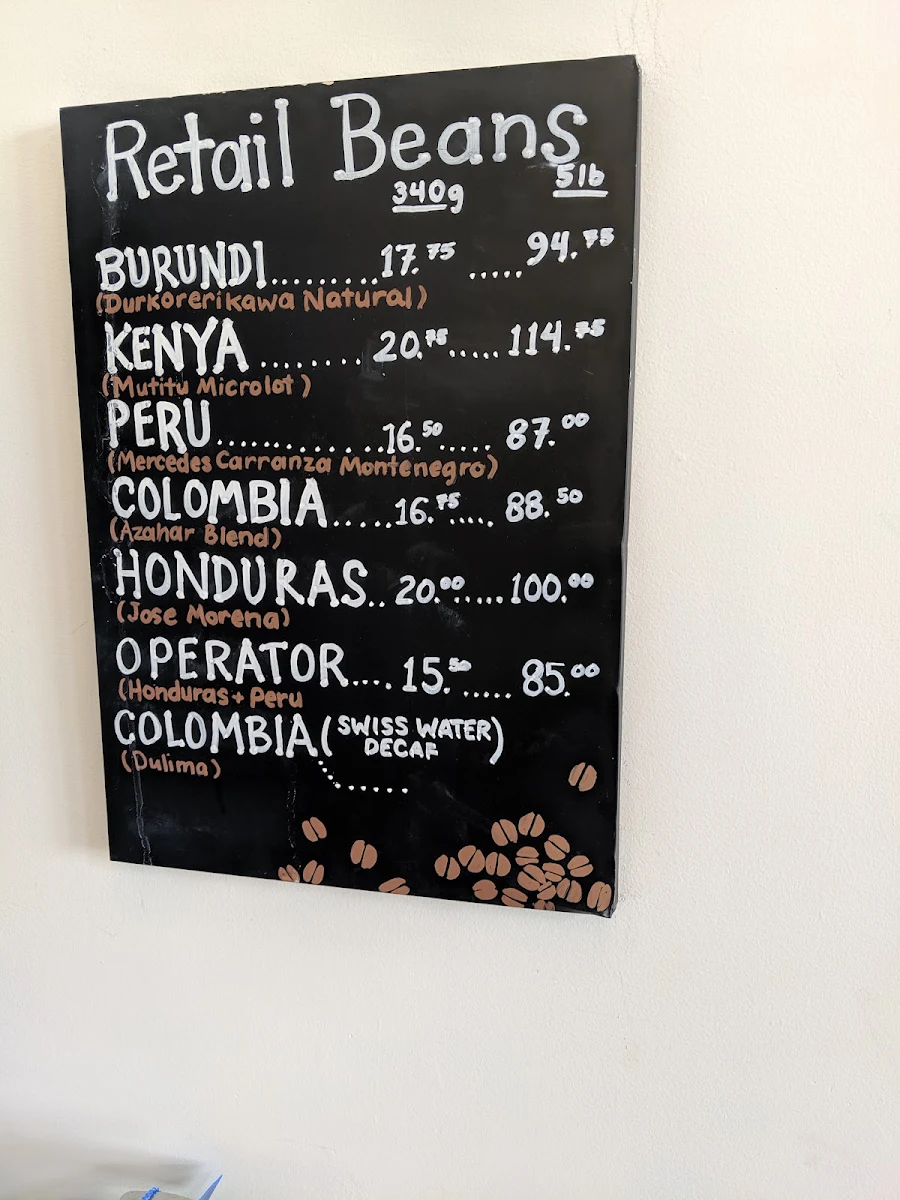 Retail Beans
340g 5lb
BURUNDI.........17.75 .....94.75
(Durkorerikawa Natural)
KENYA ........ 20.75..... 114.75
(Mutitu Microlot)
PERU.............16.50..... 87.00
(Mercedes Carranza Montenegro)
COLOMBIA.....16.75..... 88.50
(Azahar Blend)
HONDURAS.. 20.00.....100.00
(Jose Morena)
OPERATOR.... 15.50..... 85.00
(Honduras + Peru
COLOMBIA (SWISS WATER
DECAF)
(Dulima)